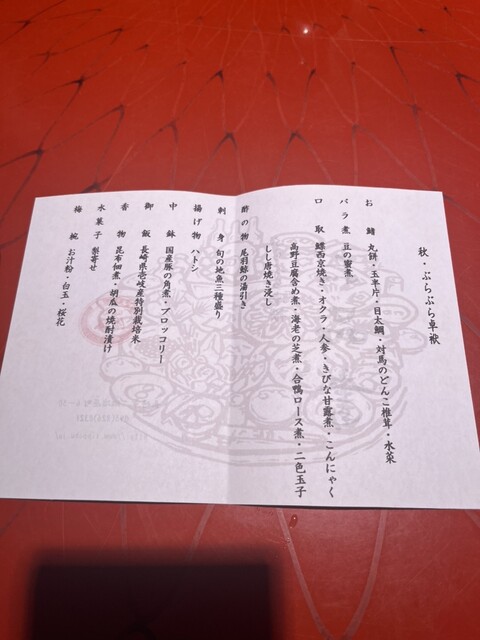 秋・ぶらぶら卓袱
お鰭 丸餅・玉半片・目士鯛・対馬のどんこ椎茸・水菜
バラ煮 豆の蜜煮
口取 鰈西京焼き・オクラ・人参・きびな甘露煮・こんにゃく
高野豆腐含め煮・海老の芝煮・合鴨ロース煮・二色玉子
しし唐焼き浸し
酢の物 尾羽鯨の湯引き
刺身 旬の地魚三種盛り
揚げ物 ハトシ
中鉢 国産豚の角煮・ブロッコリー
御飯 長崎県壱岐産特別栽培米
香物 昆布佃煮・胡瓜の焼酎漬け
水菓子 梨寄せ
梅椀 お汁粉・白玉・桜花